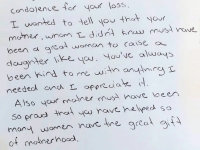 condolence for your loss.
I wanted to tell you that your
mother, whom I didn't know must have
been a great woman to raise a
daughter like you. You've always
been kind to me with anything I
needed and I appreciate it.
Also your mother must have been
so proud that you have helped so
many women have the great gift
of motherhood.